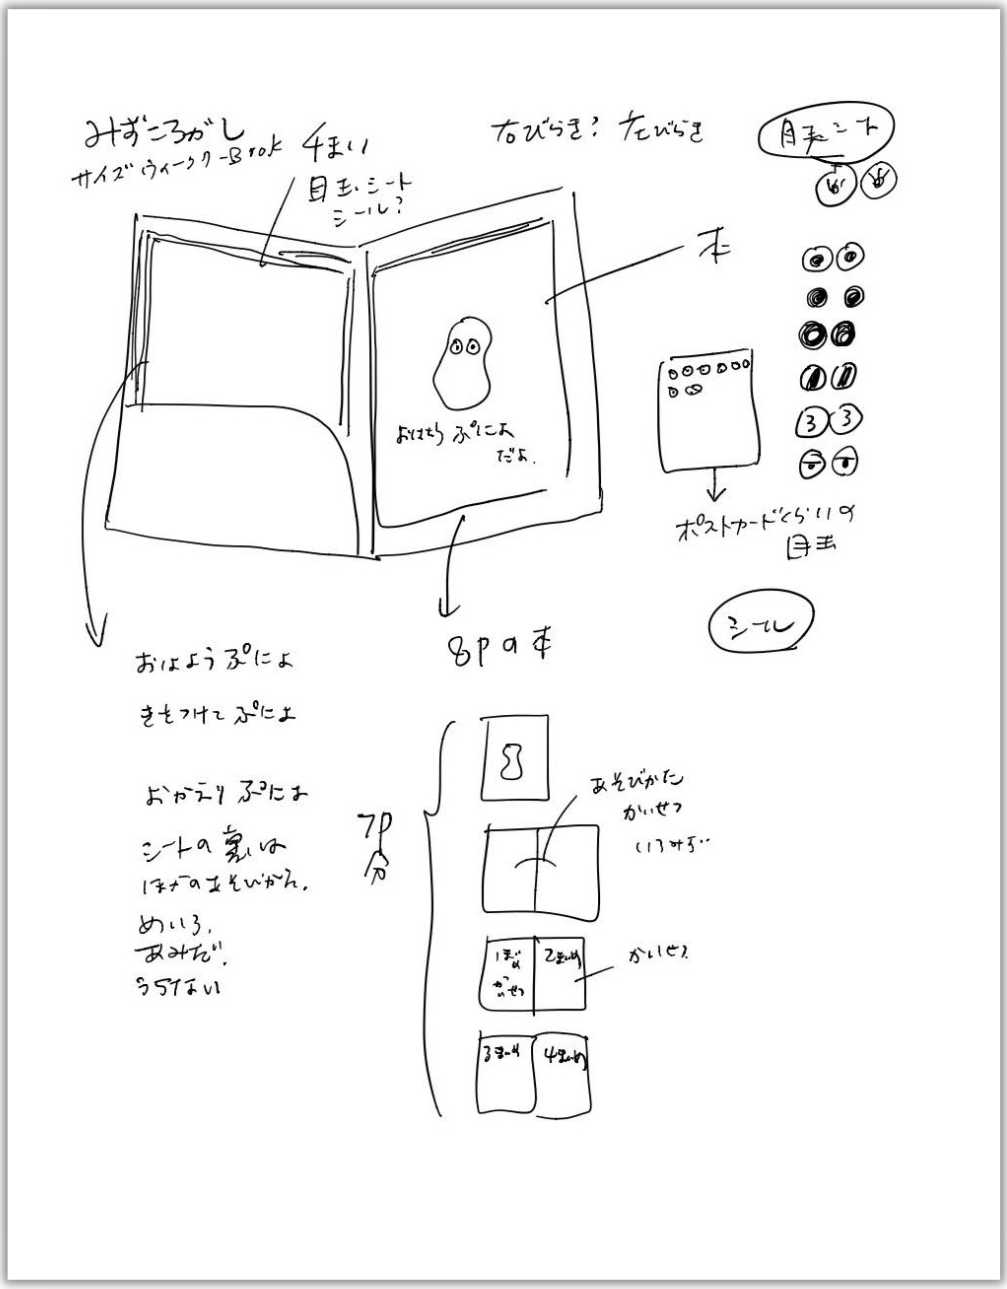 みずころがし
サイズ ウィークリーBook
4まい
目玉シート
シール?
右びらき? 左びらき
目玉シート
本
おはよう ぷによ
だよ.
ポストカードくらいの
目玉
シール
8Pの本
おはようぷによ
きをつけて ぷによ
おかえり ぷによ
シートの裏は
ほかのあそびかた.
めいろ.
あみだ.
うらない
7P
分
あそびかた
かいせつ
いろみず
1まいめ
かいせつ
2まいめ
かいせつ
3まいめ
4まいめ